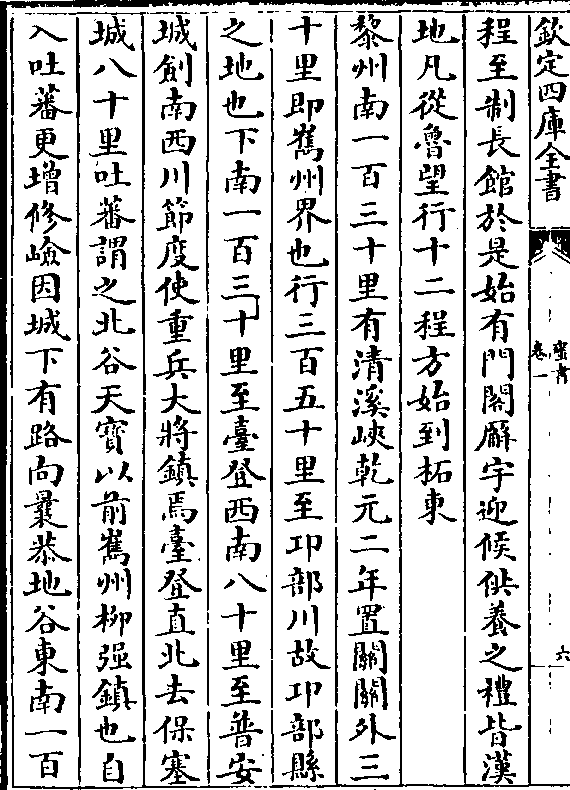 欽定四庫全書
蠻書
卷一
六
程至制長館於是始有門閣廨宇迎候供養之禮皆漢
地凡從魯望行十二程方始到柘東
黎州南一百三十里有清溪峽乾元二年置關關外三
十里即巂州界也行三百五十里至卭部川故卭部縣
之地也下南一百三十里至臺登西南八十里至普安
城劍南西川節度使重兵大將鎮焉臺登直北去保塞
城八十里吐蕃謂之北谷天寶以前巂州柳强鎮也自
入吐蕃更增修嶮因城下有路向曩恭地谷東南一百